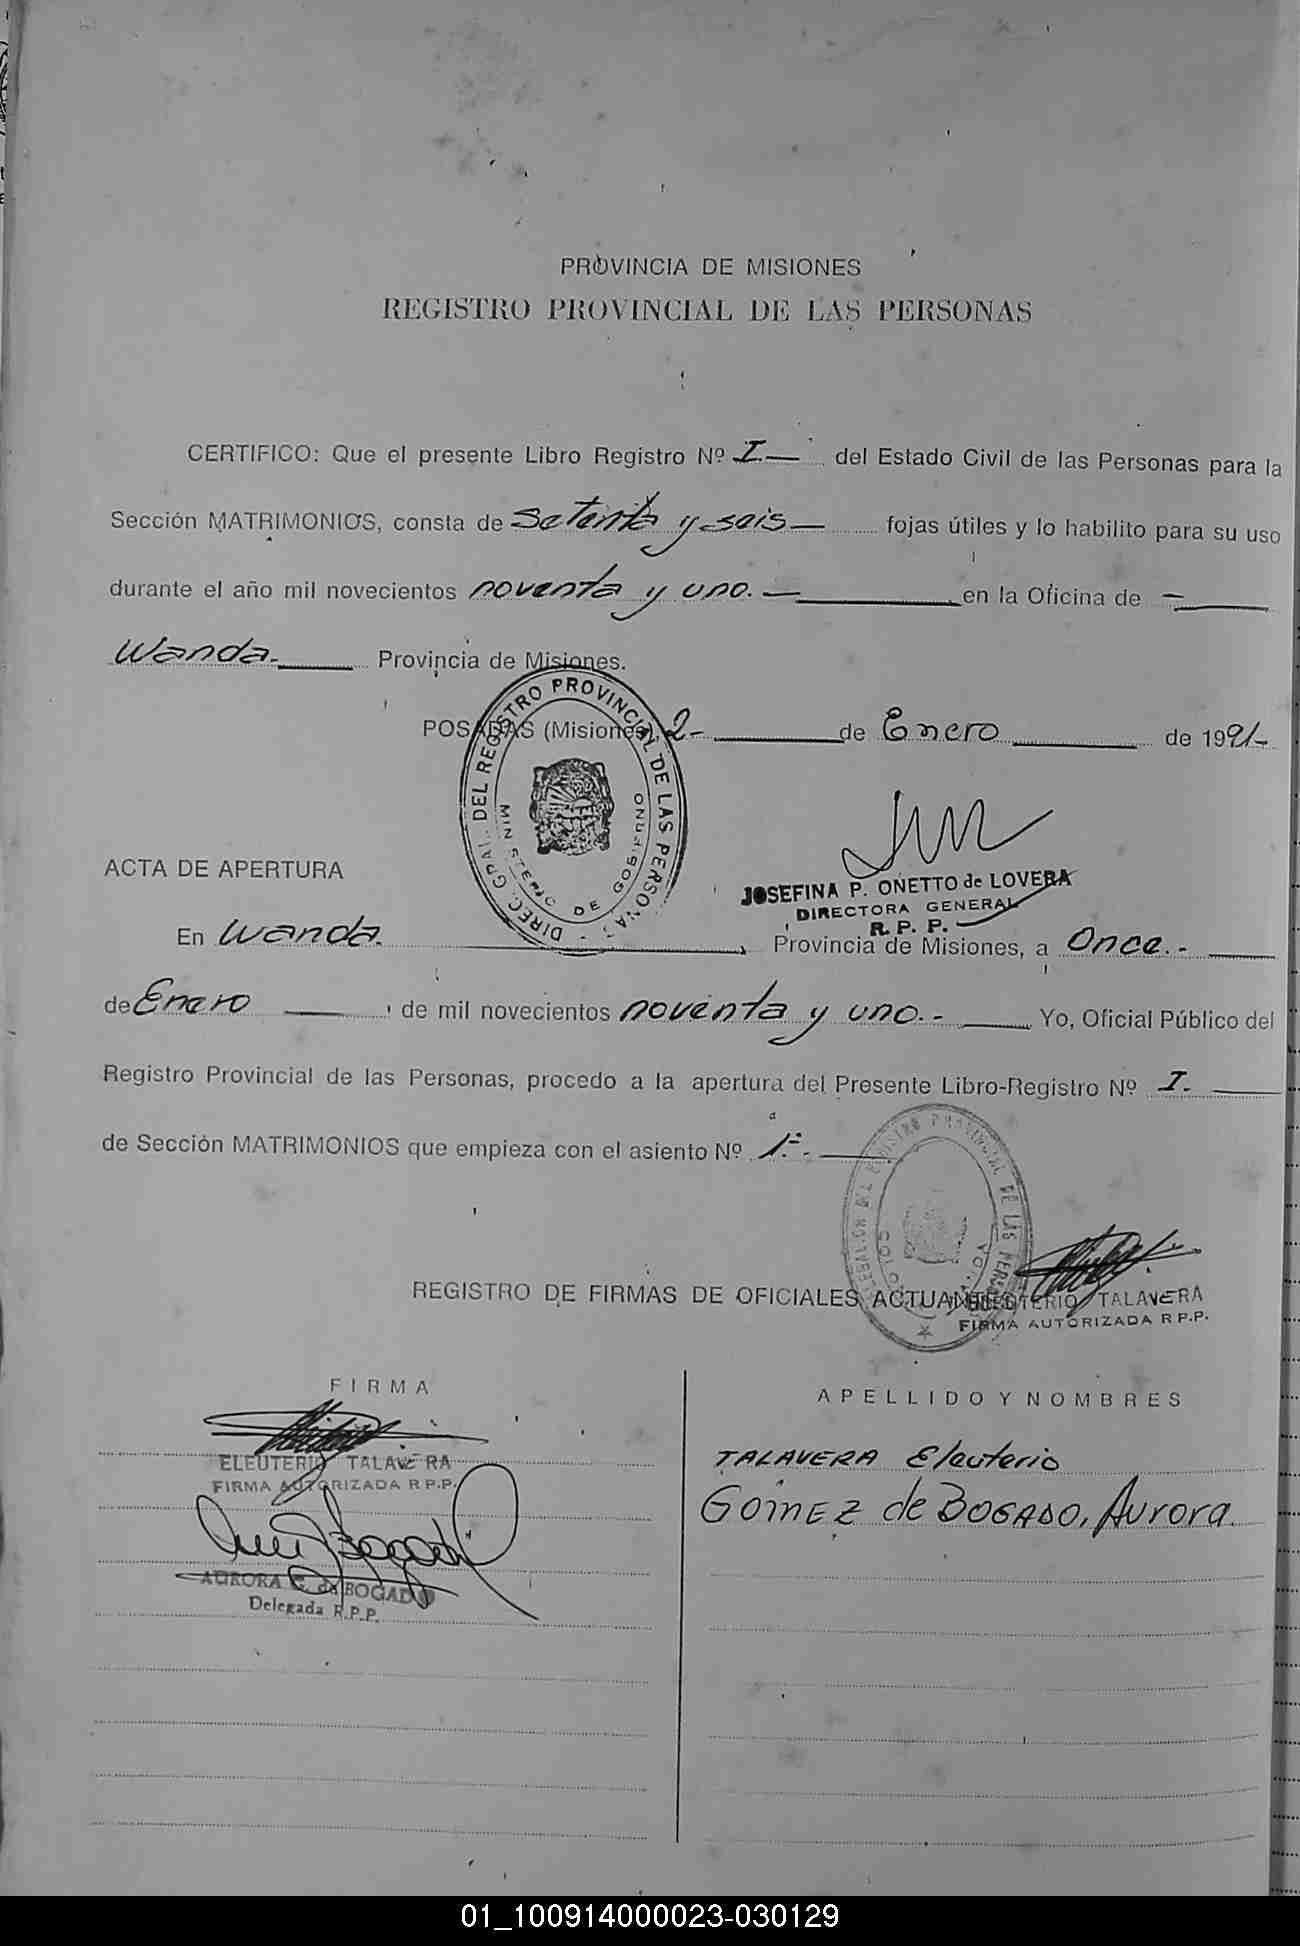 PROVINCIA DE MISIONES
REGISTRO PROVINCIAL DE LAS PERSONAS
CERTIFICO: Que el presente Libro Registro Nº I.— del Estado Civil de las Personas para la
Sección MATRIMONIOS, consta de Setenta y seis— fojas útiles y lo habilito para su uso
durante el año mil novecientos noventa y uno.— en la Oficina de —
Wanda.— Provincia de Misiones.
POSADAS (Misiones) 2- de Enero de 1991-
DIREC. GRAL. DEL REGISTRO PROVINCIAL DE LAS PERSONAS
MINISTERIO DE GOBIERNO
JOSEFINA P. ONETTO de LOVERA
DIRECTORA GENERAL
R. P. P.
ACTA DE APERTURA
En Wanda. Provincia de Misiones, a Once.-
de Enero de mil novecientos noventa y uno.- Yo, Oficial Público del
Registro Provincial de las Personas, procedo a la apertura del Presente Libro-Registro Nº I.
de Sección MATRIMONIOS que empieza con el asiento Nº 1.-
REGISTRO PROVINCIAL DE LAS PERSONAS
ELEUTERIO TALAVERA
FIRMA AUTORIZADA R.P.P.
REGISTRO DE FIRMAS DE OFICIALES ACTUANTES
FIRMA
APELLIDO Y NOMBRES
ELEUTERIO TALAVERA
FIRMA AUTORIZADA R.P.P.
TALAVERA Eleuterio
AURORA G. de BOGADO
Delegada R.P.P.
GOMEZ de BOGADO, Aurora.
01_100914000023-030129